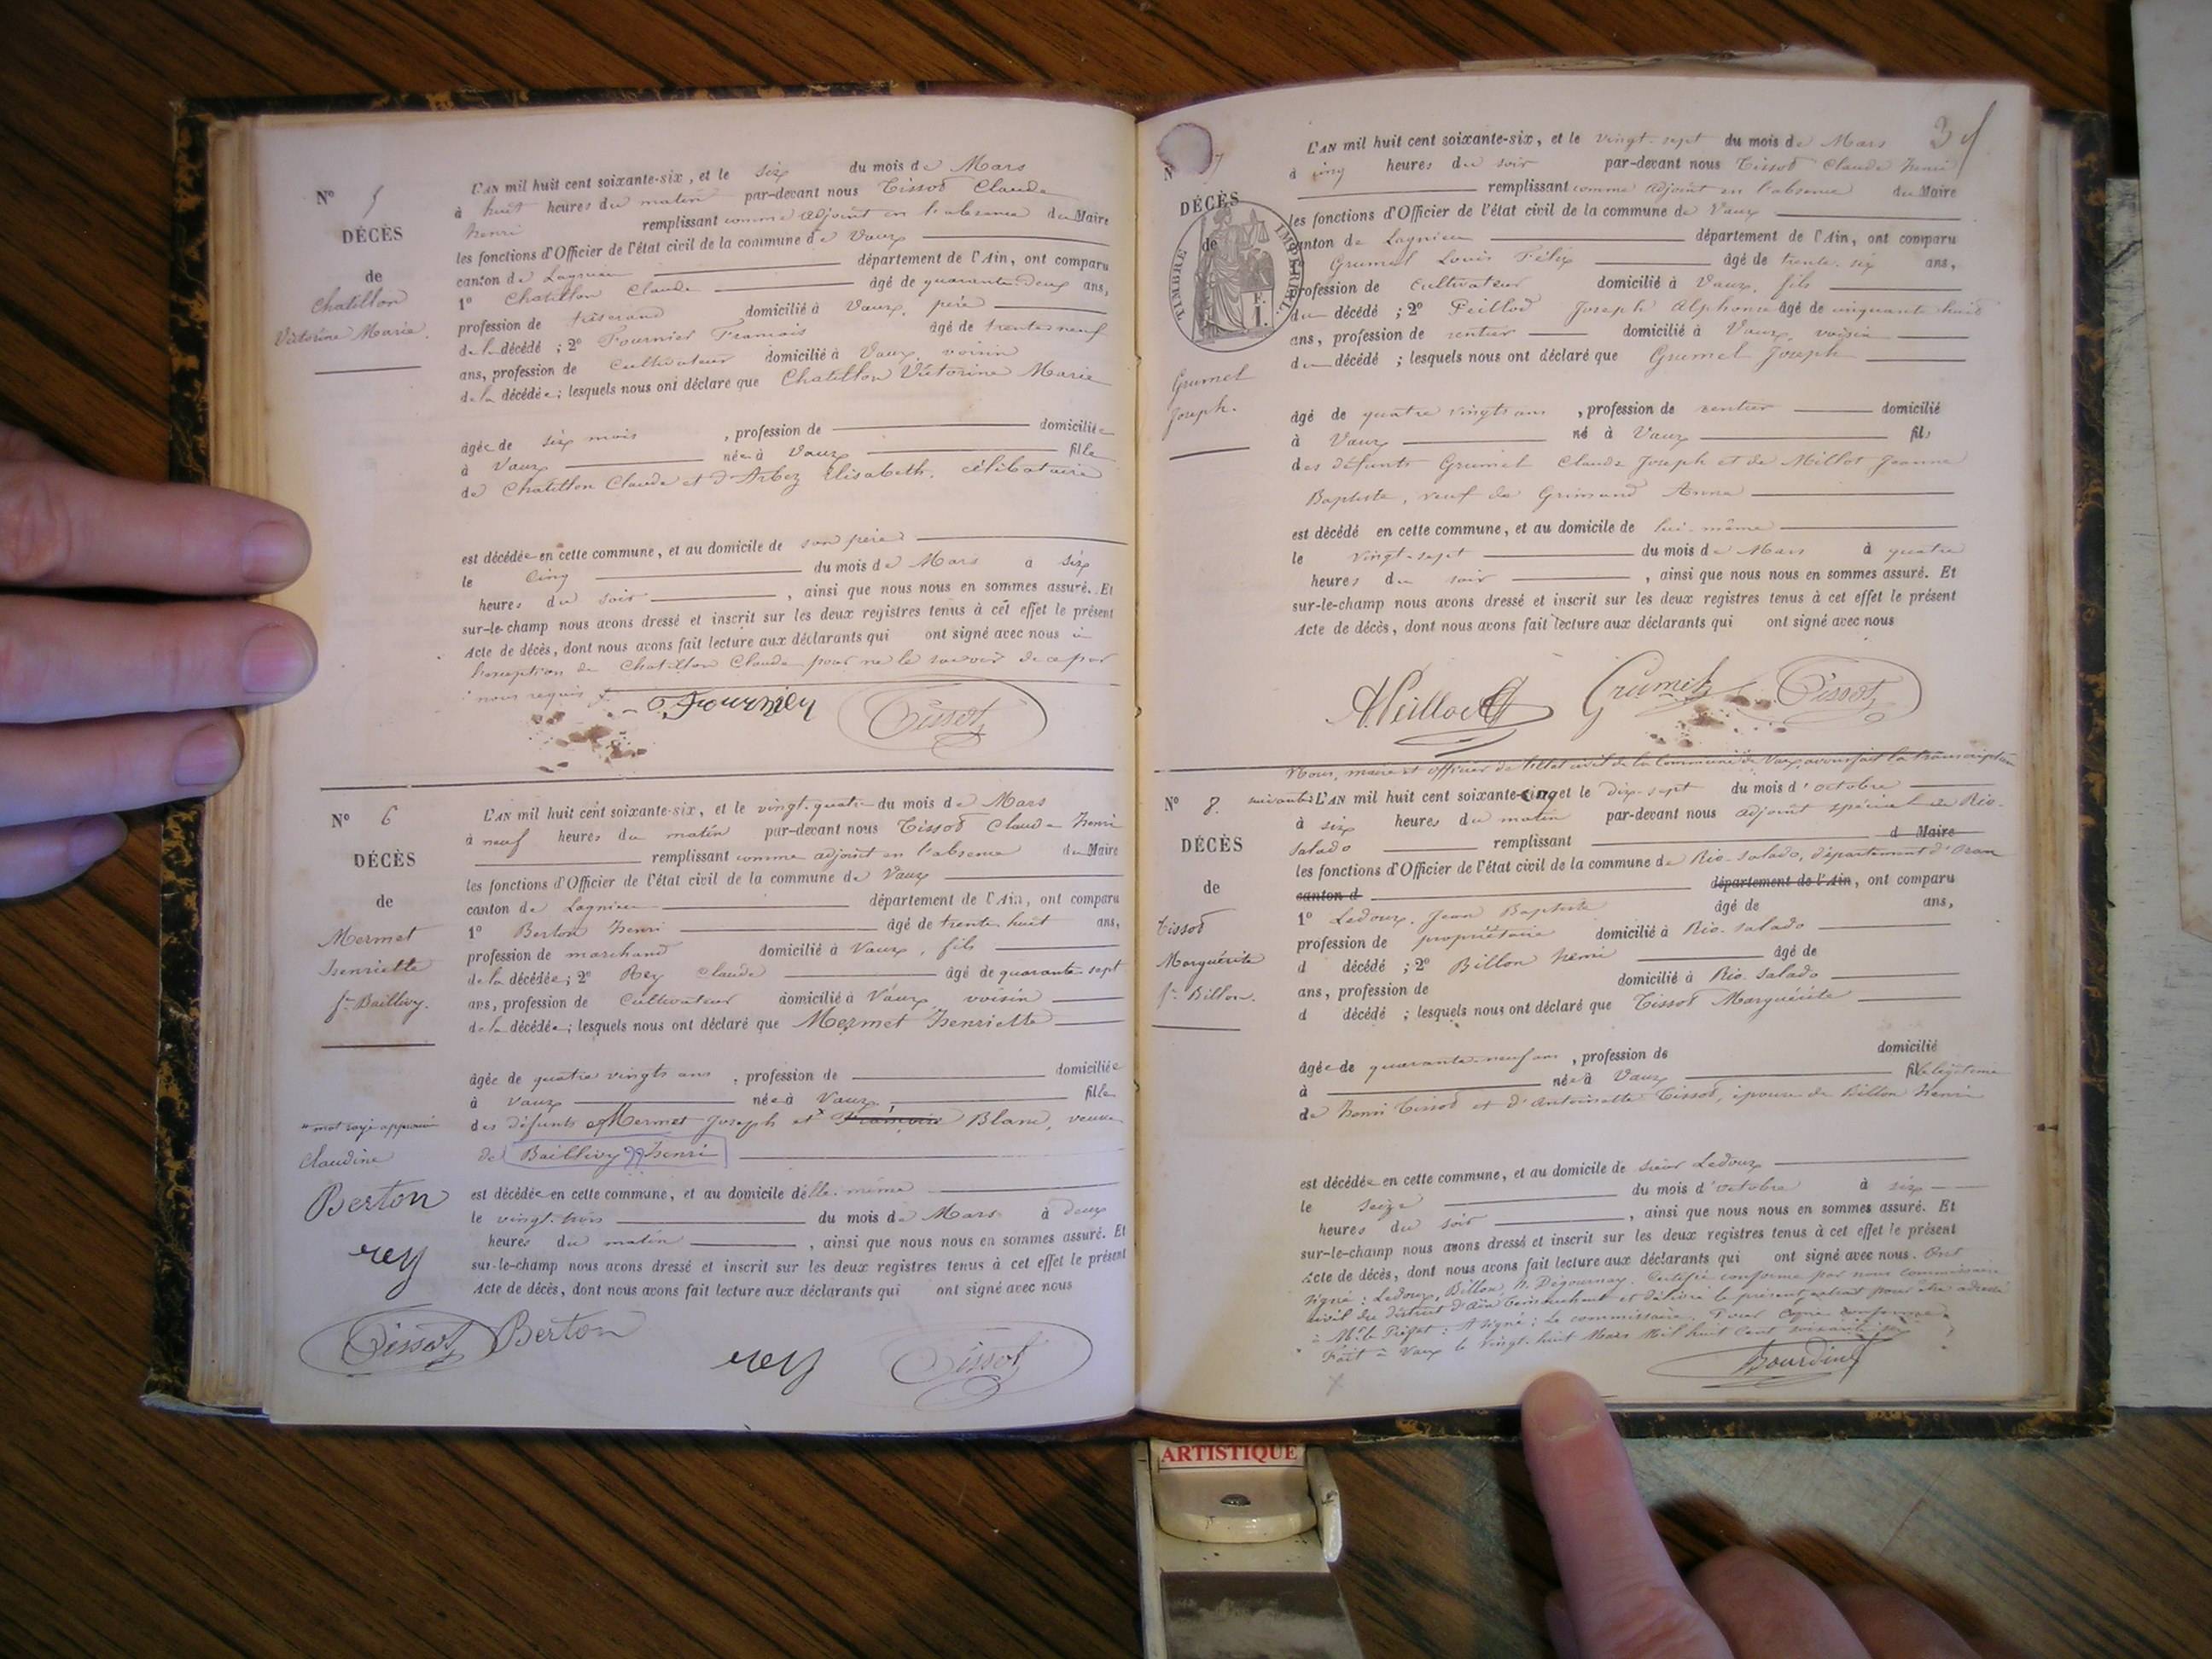 N° 5
DÉCÈS
de
Chatillon
Victorine Marie.
L'AN mil huit cent soixante-six, et le six du mois de Mars
à huit heures du matin par-devant nous Tissot Claude
henri remplissant comme adjoint en l'absence du Maire
les fonctions d'Officier de l'état civil de la commune de Vaux
canton de Lagnieu département de l'Ain, ont comparu
1° Chatillon Claude âgé de quarante-deux ans,
profession de tisserand domicilié à Vaux, père
de la décédé ; 2° Fournier François âgé de trente neuf
ans, profession de Cultivateur domicilié à Vaux, voisin
de la décédée ; lesquels nous ont déclaré que Chatillon Victorine Marie
âgée de six mois , profession de domiciliée
à Vaux née à Vaux fille
de Chatillon Claude et d'Arbez Elisabeth, célibataire
est décédée en cette commune, et au domicile de son père
le Cinq du mois de Mars à six
heures du soir , ainsi que nous nous en sommes assuré. Et
sur-le-champ nous avons dressé et inscrit sur les deux registres tenus à cet effet le présent
Acte de décès, dont nous avons fait lecture aux déclarants qui ont signé avec nous à
l'exception de Chatillon Claude pour ne le savoir de ce par
nous requis
Fournier Tissot
N° 6
DÉCÈS
de
Mermet
henriette
fe Baillivy.
L'AN mil huit cent soixante-six, et le vingt-quatre du mois de Mars
à neuf heures du matin par-devant nous Tissot Claude henri
remplissant comme adjoint en l'absence du Maire
les fonctions d'Officier de l'état civil de la commune de Vaux
canton de Lagnieu département de l'Ain, ont comparu
1° Berton henri âgé de trente huit ans,
profession de marchand domicilié à Vaux, fils
de la décédée ; 2° Rey Claude âgé de quarante-sept
ans, profession de Cultivateur domicilié à Vaux, voisin
de la décédée ; lesquels nous ont déclaré que Mermet henriette
âgée de quatre vingts ans , profession de domiciliée
à Vaux née à Vaux, fille
des défunts Mermet Joseph et x Françoise Blanc, veuve
de Baillivy henri
x mot rayé approuvé
Claudine
Berton
rey
est décédée en cette commune, et au domicile d'elle-même
le vingt-trois du mois de Mars à deux
heures du matin , ainsi que nous nous en sommes assuré. Et
sur-le-champ nous avons dressé et inscrit sur les deux registres tenus à cet effet le présent
Acte de décès, dont nous avons fait lecture aux déclarants qui ont signé avec nous
Tissot Berton rey Tissot
3
N° 7
DÉCÈS
de
TIMBRE IMPÉRIAL
Grumet
Joseph.
L'AN mil huit cent soixante-six, et le vingt-sept du mois de Mars
à cinq heures du soir par-devant nous Tissot Claude henri
remplissant comme adjoint en l'absence du Maire
les fonctions d'Officier de l'état civil de la commune de Vaux
canton de Lagnieu département de l'Ain, ont comparu
Grumet Louis Félix âgé de trente-six ans,
profession de Cultivateur domicilié à Vaux, fils
du décédé ; 2° Peillod Joseph Alphonse âgé de cinquante huit
ans, profession de rentier domicilié à Vaux, voisin
du décédé ; lesquels nous ont déclaré que Grumet Joseph
âgé de quatre vingts ans , profession de rentier domicilié
à Vaux né à Vaux fils
des défunts Grumet Claude Joseph et de Millot Jeanne
Baptiste, veuf de Grimand Anne
est décédé en cette commune, et au domicile de lui-même
le vingt-sept du mois de Mars à quatre
heures du soir , ainsi que nous nous en sommes assuré. Et
sur-le-champ nous avons dressé et inscrit sur les deux registres tenus à cet effet le présent
Acte de décès, dont nous avons fait lecture aux déclarants qui ont signé avec nous
APeillod Grumet Tissot
Nous, maire et officier de l'état civil de la Commune de Vaux avons fait la transcription
N° 8.
DÉCÈS
de
Tissot
Marguérite
fe Billon.
suivante: L'AN mil huit cent soixante-cinq et le dix-sept du mois d'octobre
à six heures du matin par-devant nous adjoint spécial de Rio-
Salado remplissant d Maire
les fonctions d'Officier de l'état civil de la commune de Rio-Salado, département d'Oran
canton d département de l'Ain, ont comparu
1° Ledoux Jean Baptiste âgé de ans,
profession de propriétaire domicilié à Rio-Salado
d décédé ; 2° Billon henri âgé de
ans, profession de domicilié à Rio-Salado
d décédé ; lesquels nous ont déclaré que Tissot Marguérite
âgée de quarante-neuf ans , profession de domicilié
à née à Vaux fille légitime
de henri Tissot et d'Antoinette Tissot, épouse de Billon henri
est décédée en cette commune, et au domicile de sieur Ledoux
le seize du mois d'octobre à six
heures du soir , ainsi que nous nous en sommes assuré. Et
sur-le-champ nous avons dressé et inscrit sur les deux registres tenus à cet effet le présent
Acte de décès, dont nous avons fait lecture aux déclarants qui ont signé avec nous. Ont
signé : Ledoux, Billon, h. Dégournay. Certifié conforme par nous commissaire
civil du district d'Aïn Temouchent et délivré le présent extrait pour être adressé
à Mr le Préfet : A signé : Le commissaire. Pour Copie conforme
Fait à Vaux le vingt-huit Mars mil huit cent soixante six
Bourdin
ARTISTIQUE